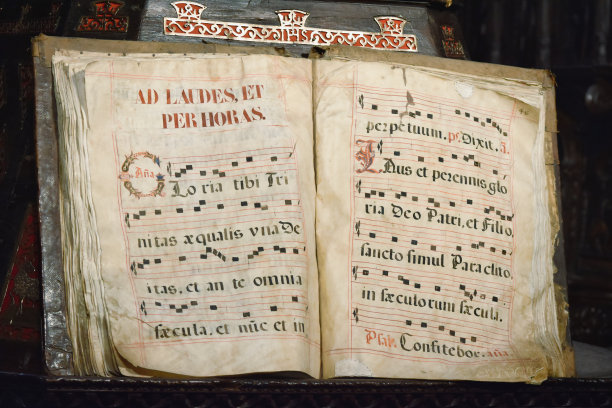 IHS
AD LAUDES, ET
PER HORAS.
Aña
Loria tibi Tri
nitas æqualis vna De
itas, et an te omnia
sæcula, et nũc et in
perpetuum. ps. Dixit. ã.
Laus et perennis glo
ria Deo Patri, et Filio,
sancto simul Paraclito,
in sæculorum sæcula.
Psal. Confitebor. aña